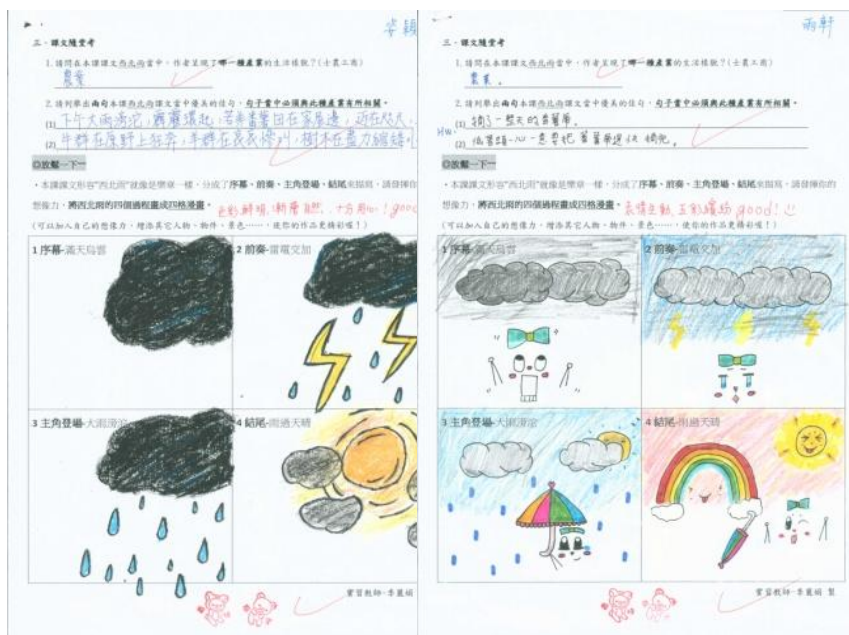 姿穎
三、課文隨堂考
1. 請問在本課課文西北雨當中，作者呈現了哪一種產業的生活樣貌？(士農工商)
農業
2. 請列舉出兩句本課西北雨課文當中優美的佳句，句子當中必須與此種產業有所相關。
(1) 下午大雨滂沱，霹靂環起，若番薯田在家屋邊，近在咫尺，
(2) 牛群在原野上狂奔，羊群在哀哀慘叫，樹木在盡力縮矮
◎放鬆一下
・本課課文形容"西北雨"就像是樂章一樣，分成了序幕、前奏、主角登場、結尾來描寫，請發揮你
想像力，將西北雨的四個過程畫成四格漫畫。
色彩鮮明，十分用心！good
(可以加入自己的想像力，增添其它人物、物件、景色……，使你的作品更精彩喔！)
1 序幕-滿天烏雲
2 前奏-雷電交加
3 主角登場-大雨滂沱
4 結尾-雨過天晴
雨軒
三、課文隨堂考
1. 請問在本課課文西北雨當中，作者呈現了哪一種產業的生活樣貌？(士農工商)
農業。
2. 請列舉出兩句本課西北雨課文當中優美的佳句，句子當中必須與此種產業有所相關。
HW.
(1) 犄了一整天的番薯簽。
(2) 低著頭一心一意要把番薯簽趕快犄完。
◎放鬆一下
・本課課文形容"西北雨"就像是樂章一樣，分成了序幕、前奏、主角登場、結尾來描寫，請發揮你的
想像力，將西北雨的四個過程畫成四格漫畫。
表情生動，五彩繽紛 good！
(可以加入自己的想像力，增添其它人物、物件、景色……，使你的作品更精彩喔！)
1 序幕-滿天烏雲
2 前奏-雷電交加
3 主角登場-大雨滂沱
4 結尾-雨過天晴
實習教師-李晨娟 製